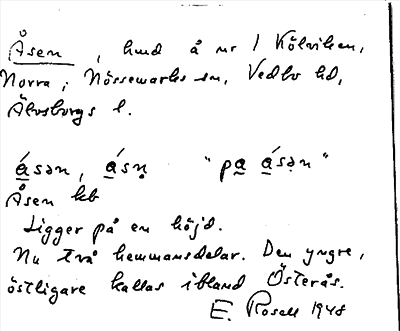 Åsen, hmd å nr 1 Kölviken,
Norra; Nössemarks sn, Vedbo hd,
Älvsborgs l.
á̱sən, á̱sṇ "pa̱ á̱sə̣n"
Åsen kb
Ligger på en höjd.
Nu två hemmansdelar. Den yngre,
östligare kallas ibland Österås.
E. Rosell 1948